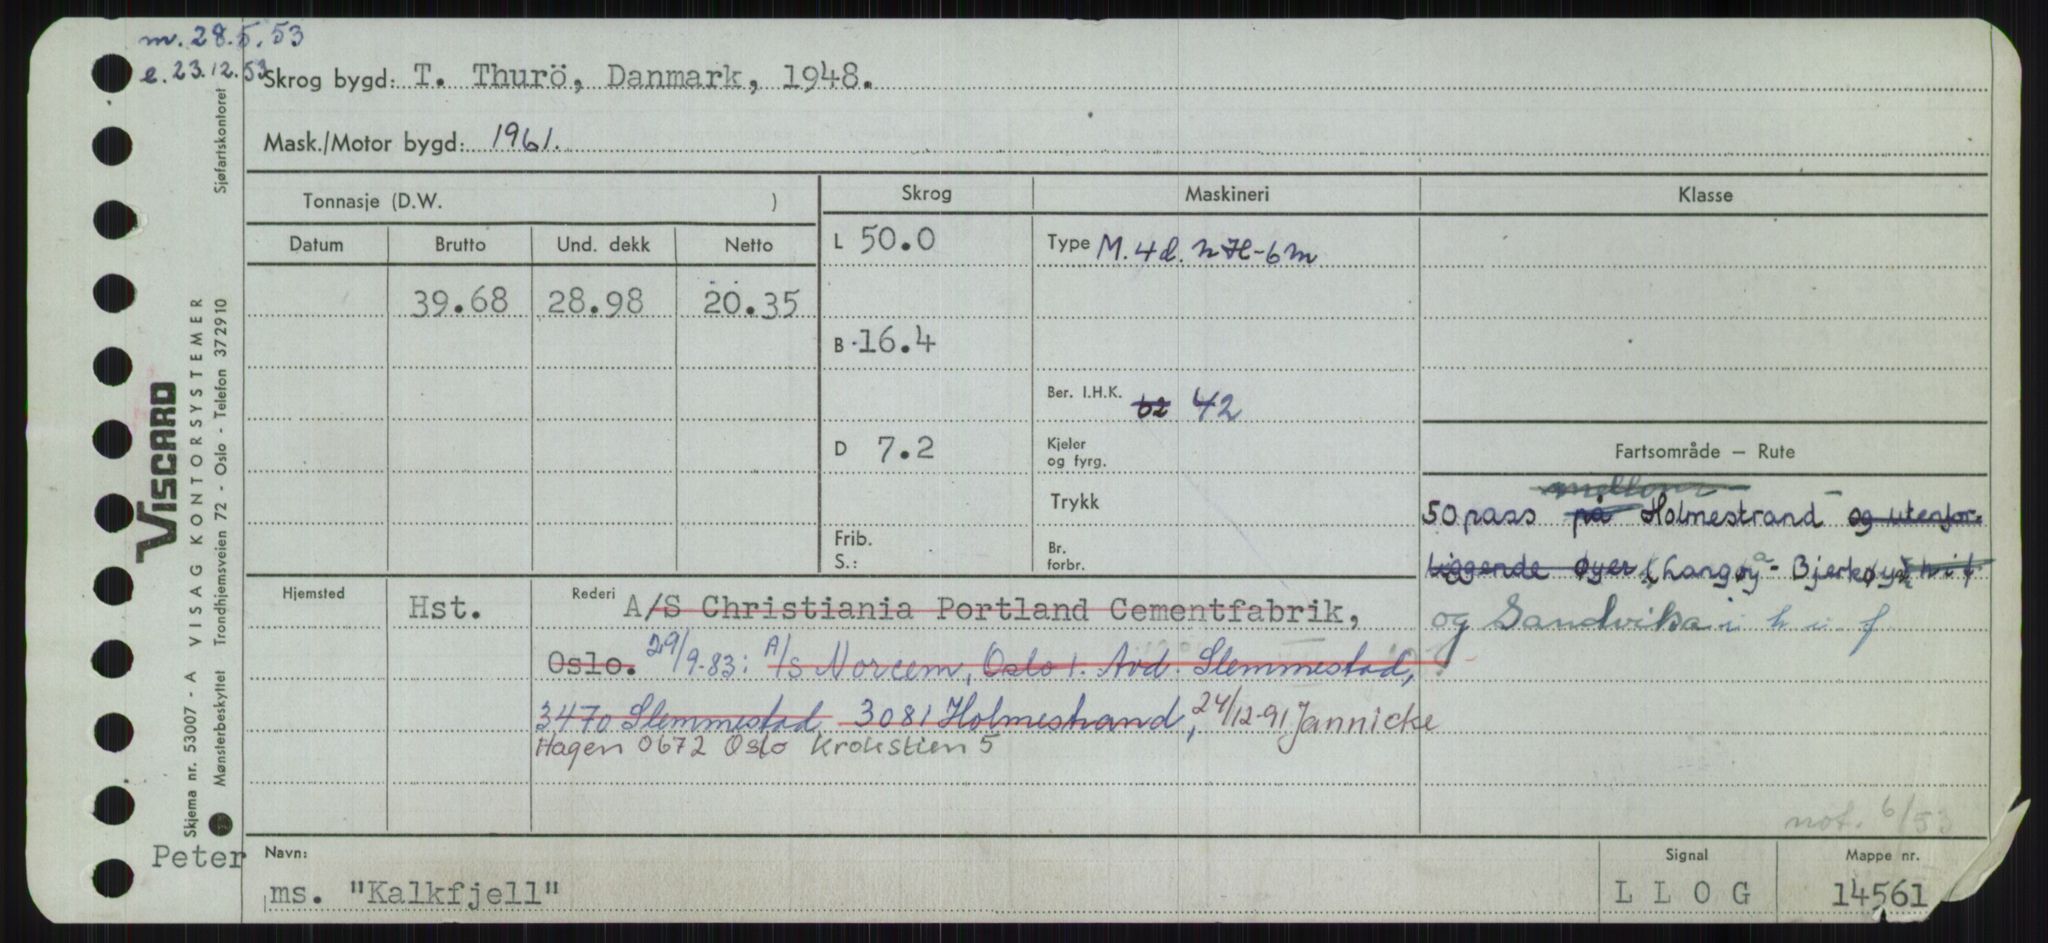 m. 28.5.53
e. 23.12.53
Skrog bygd: T. Thurö, Danmark, 1948.
Mask./Motor bygd: 1961.
Tonnasje (D.W. )
Skrog
Maskineri
Klasse
Datum Brutto Und. dekk Netto
L 50.0
Type M. 4d. n H-6m
39.68 28.98 20.35
B 16.4
Ber. I.H.K. 42
D 7.2
Kjeler
og fyrg.
Trykk
Frib.
S.:
Br.
forbr.
Fartsområde – Rute
mellom
50 pass på Holmestrand – og utenfor-
liggende øyer (Langøya - Bjerkøya) h i f
og Sandvika i h i f
Hjemsted Hst.
Rederi A/S Christiania Portland Cementfabrik,
Oslo. 29/9-83: A/S Norcem, Oslo 1. Avd. Slemmestad,
3470 Slemmestad, 3081 Holmestrand, 24/12-91 Jannicke
Hagen 0672 Oslo Krokstien 5
not. 6/53
Peter
Navn:
ms. "Kalkfjell"
Signal
L L O G
Mappe nr.
14561
VISCARD
VISAG KONTORSYSTEMER
Skjema nr. 53007 - A
Mønsterbeskyttet Trondhjemsveien 72 - Oslo - Telefon 372910 Sjøfartskontoret